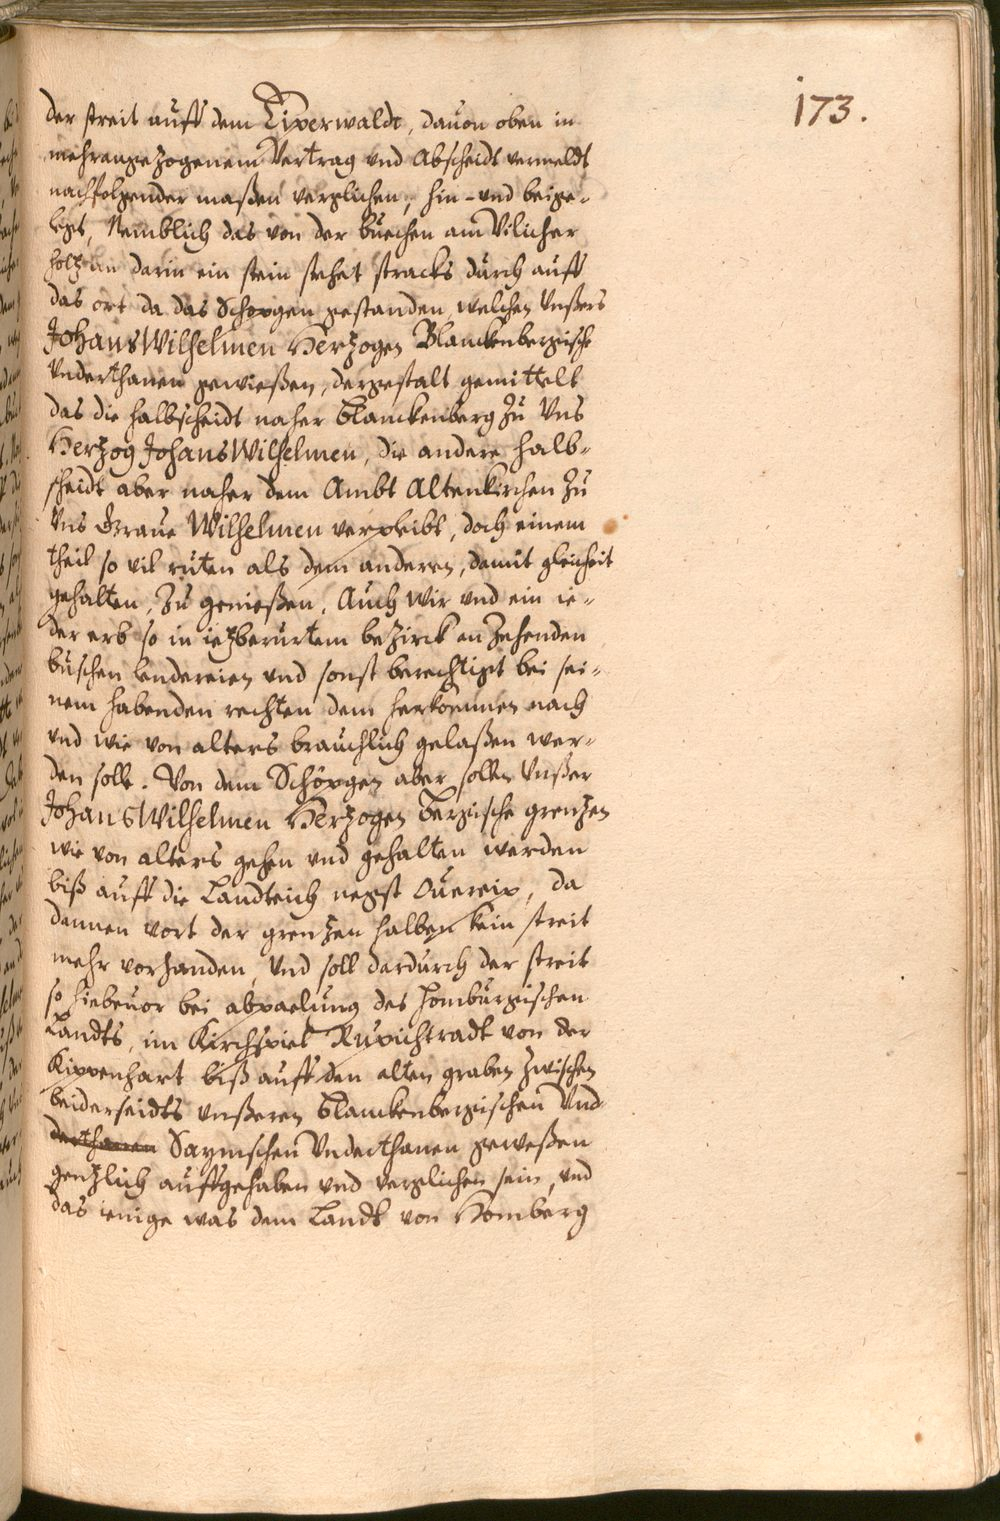 173.
der streit auff dem Liperwaldt, dauon oben in
mehrangezogenem Vertrag vnd Abscheidt vermeldt
nachfolgender maßen verglichen, hin- vnd beige-
legt, Nemblich das von der buechen am Vilicher
holtz an darin ein stein stehet stracks durch auff
das ort da das Schopgen gestanden, welchen Vnßers
Johans Wilhelmen Hertzogen Blanckenbergische
Vnderthanen gewießen, dergestalt gemittelt
das die halbscheidt naher blanckenberg zu Vns
Hertzog Johans Wilhelmen, die andere halb-
scheidt aber naher dem Ambt Altenkirchen zu
Vns Graue Wilhelmen verpleibt, doch einem
theil so vil ruten als dem anderen, damit gleicheit
gehalten, zu genießen. Auch Wir vnd ein ie-
der erb so in ietzberurtem bezirck an Zehenden
buschen lendereien vnd sonst berechtigt bei sei-
nem habenden rechten dem herkommen nach
vnd wie von alters brauchlich gelaßen wer-
den soll. Von dem Schöpgen aber sollen Vnßer
Johans Wilhelmen Hertzogen bergische grentzen
wie von alters gehen vnd gehalten werden
biß auff die Landteich negst Ouereip, da
dannen vort der grentzen halben kein streit
mehr vorhanden, Vnd soll dardurch der streit
so hiebeuor bei abpaelung des homburgischen
Landts, im Kirchspiel Rupichtradt von der
Kippenhart biß auff den alten graben zwischen
beiderseidts vnßeren blanckenbergischen Vnd
derthanen Saynischen Vnderthanen geweßen
gentzlich auffgehaben vnd verglichen sein, vnd
das ienige was dem Landt von Homberg